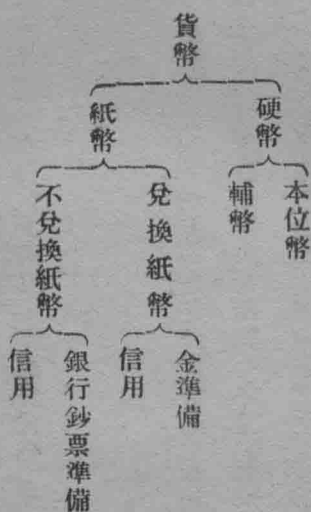 貨幣
硬幣
本位幣
輔幣
紙幣
兌換紙幣
金準備
信用
不兌換紙幣
銀行鈔票準備
信用